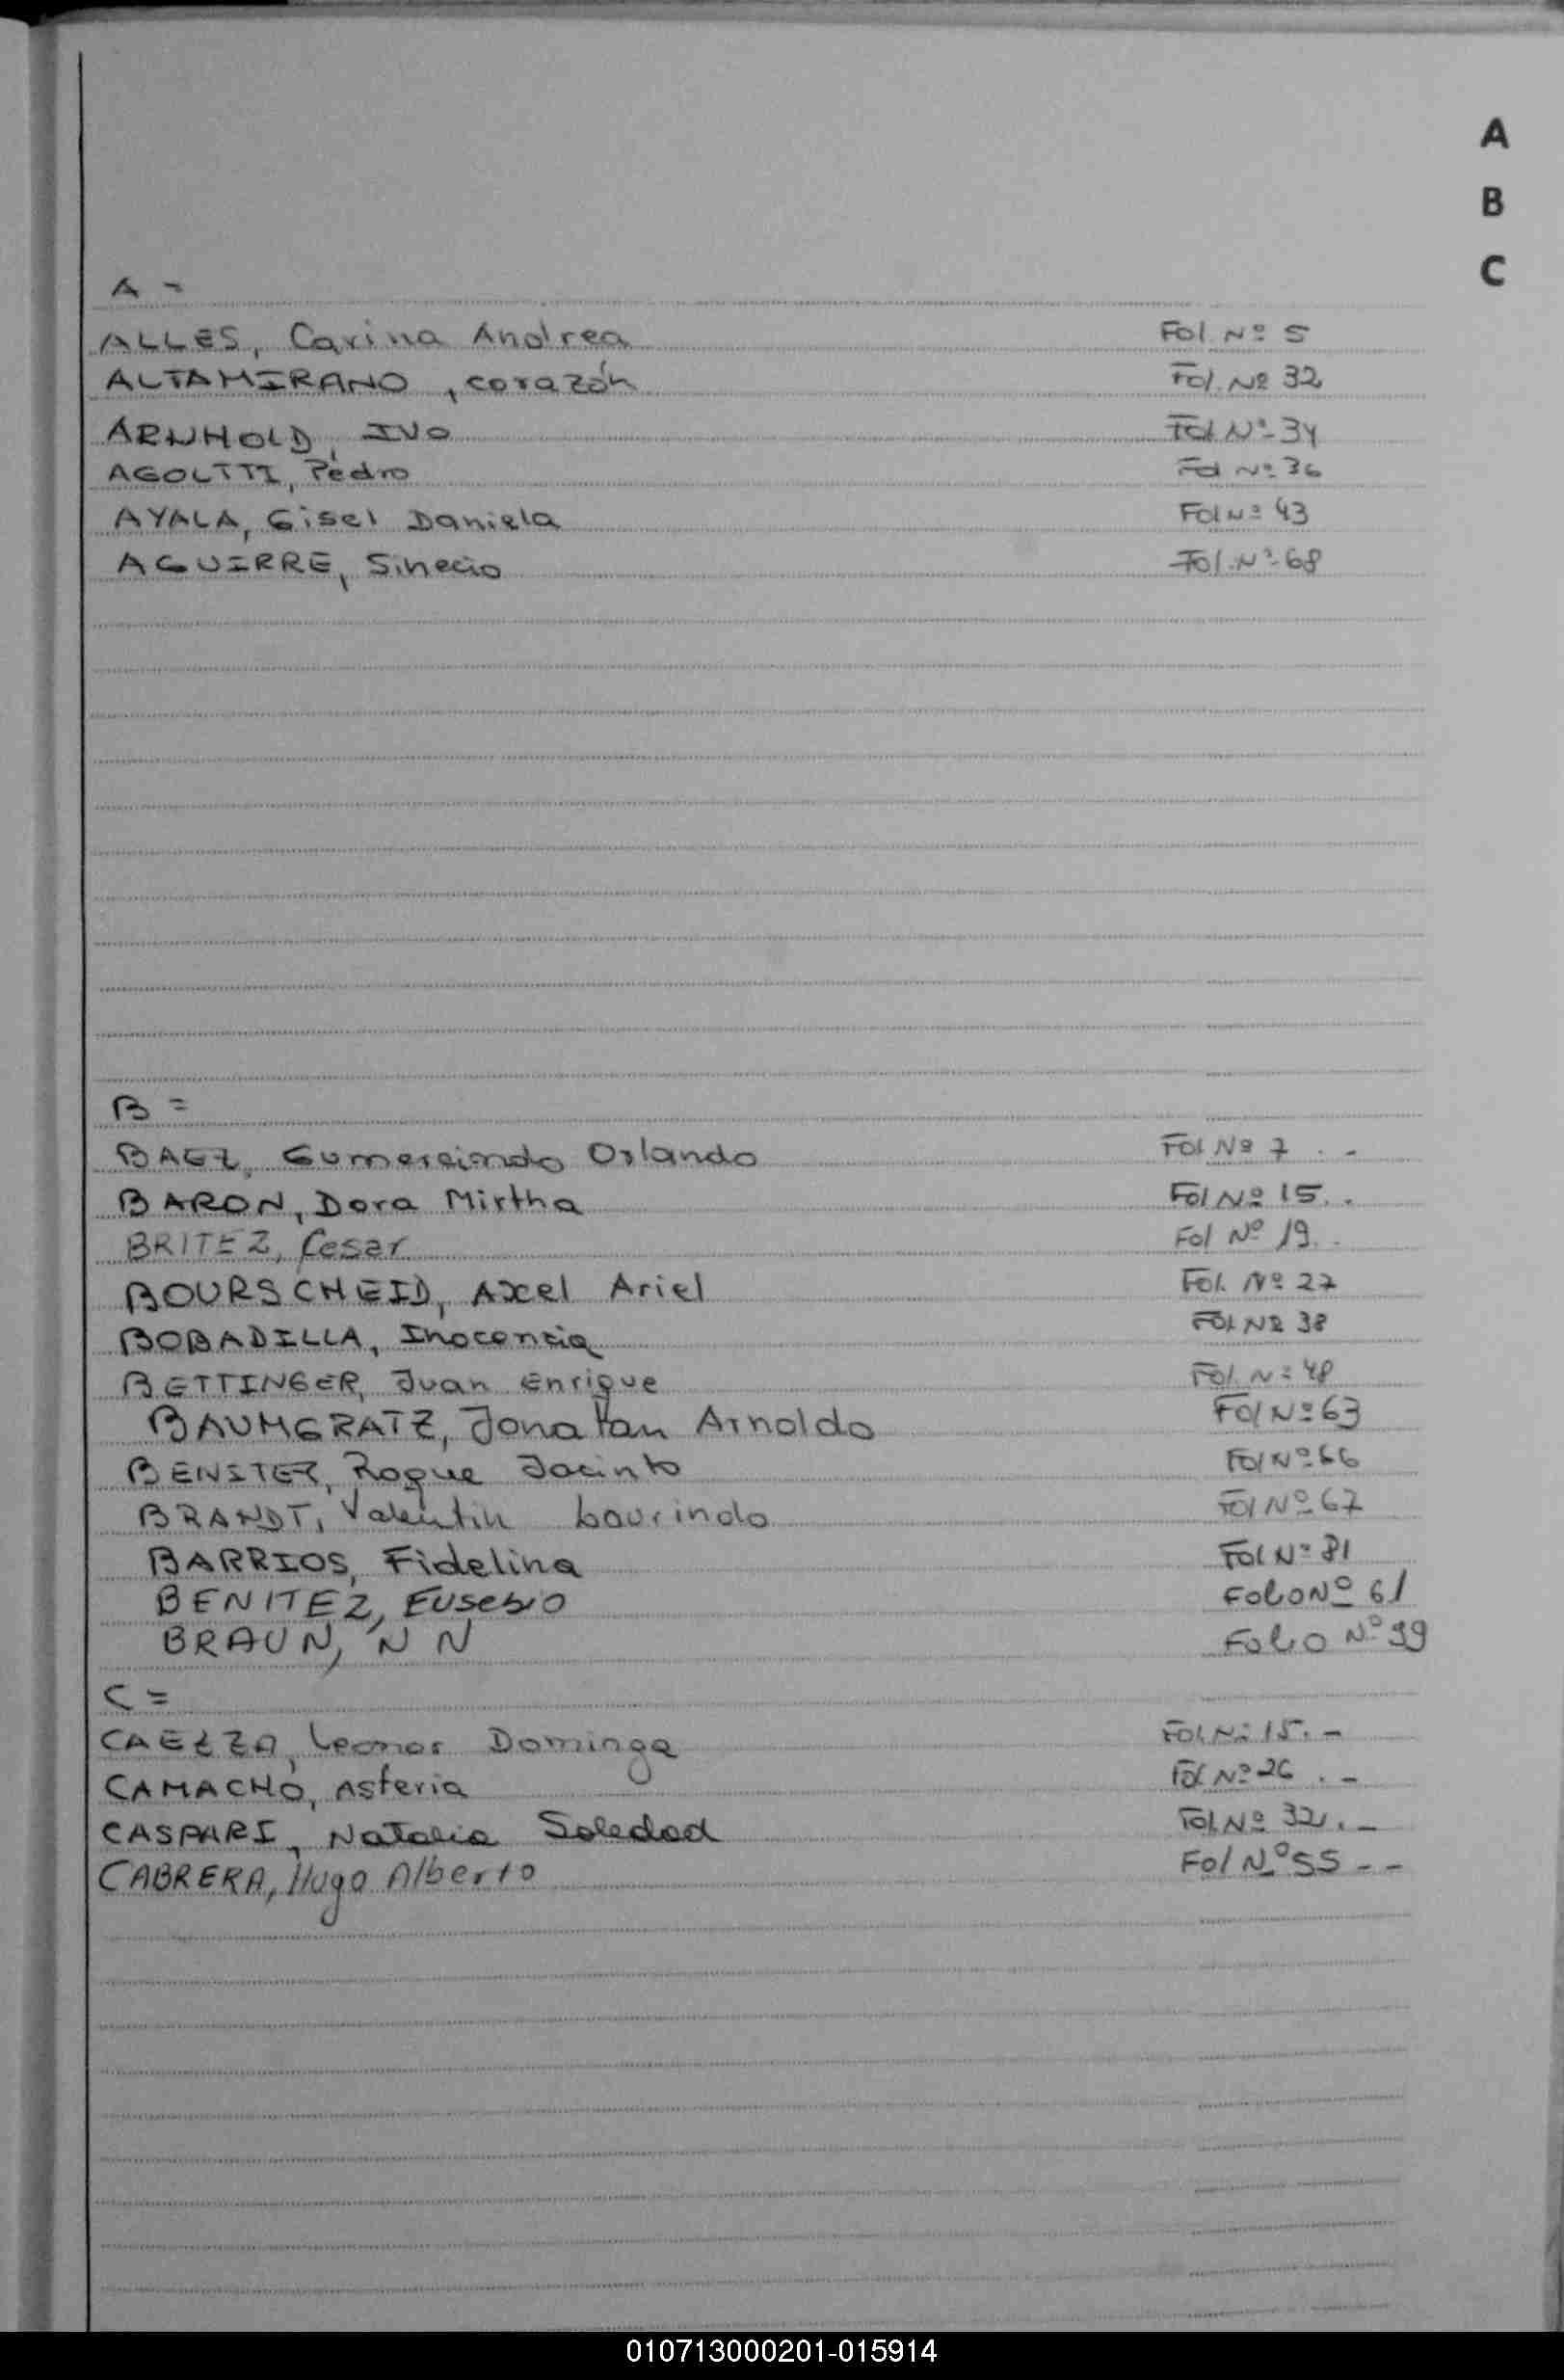 A
B
C
A -
ALLES, Carina Andrea Fol. Nº 5
ALTAMIRANO, corazón Fol. Nº 32
ARNHOLD, Ivo Fol Nº 34
AGOLTTI, Pedro Fol Nº 36
AYALA, Gisel Daniela Fol Nº 43
AGUIRRE, Sinecio Fol. Nº 68
B =
BAEZ, Gumercindo Orlando Fol Nº 7 . -
BARON, Dora Mirtha Fol Nº 15. .
BRITEZ, Cesar Fol Nº 19. .
BOURSCHEID, Axel Ariel Fol. Nº 27
BOBADILLA, Inocencia Fol Nº 38
BETTINGER, Juan Enrique Fol. Nº 48
BAUMGRATZ, Jonatan Arnoldo Fol Nº 63
BENSTER, Roque Jacinto Fol Nº 66
BRANDT, Valentin Lourindo Fol Nº 67
BARRIOS, Fidelina Fol Nº 81
BENITEZ, Eusebio Folio Nº 61
BRAUN, N N Folio Nº 99
C =
CAEZZA, Leonor Dominga Fol. Nº 15. -
CAMACHO, Asteria Fol Nº 26 . -
CASPARI, Natalia Soledad Fol. Nº 32. -
CABRERA, Hugo Alberto Fol Nº 55 - -
010713000201-015914